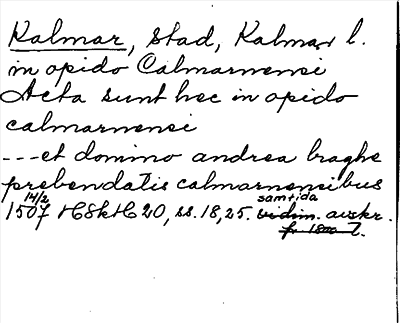 Kalmar, stad, Kalmar l.
in opido Calmarnensi
Acta sunt hec in opido
calmarnensi
---et domino andrea braghe
prebendatis calmarnensibus
14/2 samtida
1507 HSkH 20, ss. 18, 25. vidim. avskr.